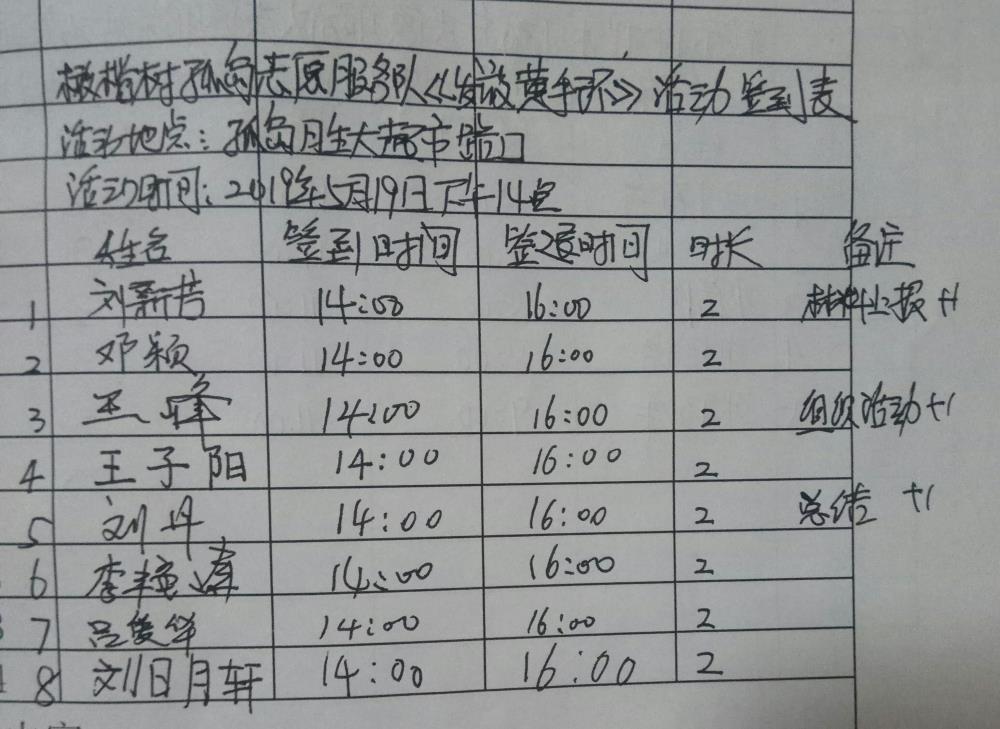 橄榄树孤岛志愿服务队《发放黄手环》活动签到表
活动地点:孤岛月生大超市门口
活动时间:2019年5月19日下午14点
姓名 签到时间 签退时间 时长 备注
1 刘新芳 14:00 16:00 2 材料上报 +1
2 邓颖 14:00 16:00 2
3 王峰 14:00 16:00 2 组织活动+1
4 王子阳 14:00 16:00 2
5 刘丹 14:00 16:00 2 总结 +1
6 李 14:00 16:00 2
7 吕俊华 14:00 16:00 2
8 刘日月轩 14:00 16:00 2